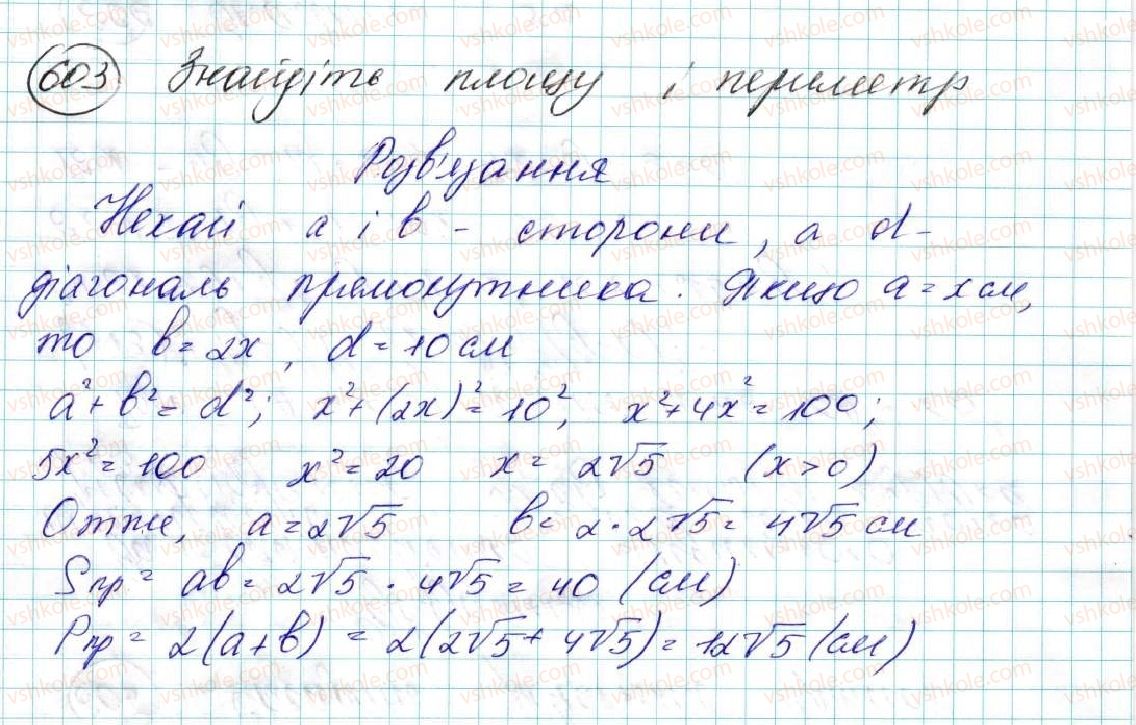 603 Знайдіть площу і периметр
Розв'язання
Нехай a і b - сторони, а d -
діагональ прямокутника. Якщо a = x см,
то b = 2x, d = 10 см
a² + b² = d²; x² + (2x)² = 10², x² + 4x² = 100;
5x² = 100 x² = 20 x = 2√5 (x > 0)
Отже, a = 2√5 b = 2 · 2√5 = 4√5 см
Sпр = ab = 2√5 · 4√5 = 40 (см)
Pпр = 2(a + b) = 2(2√5 + 4√5) = 12√5 (см)
vshkole.com